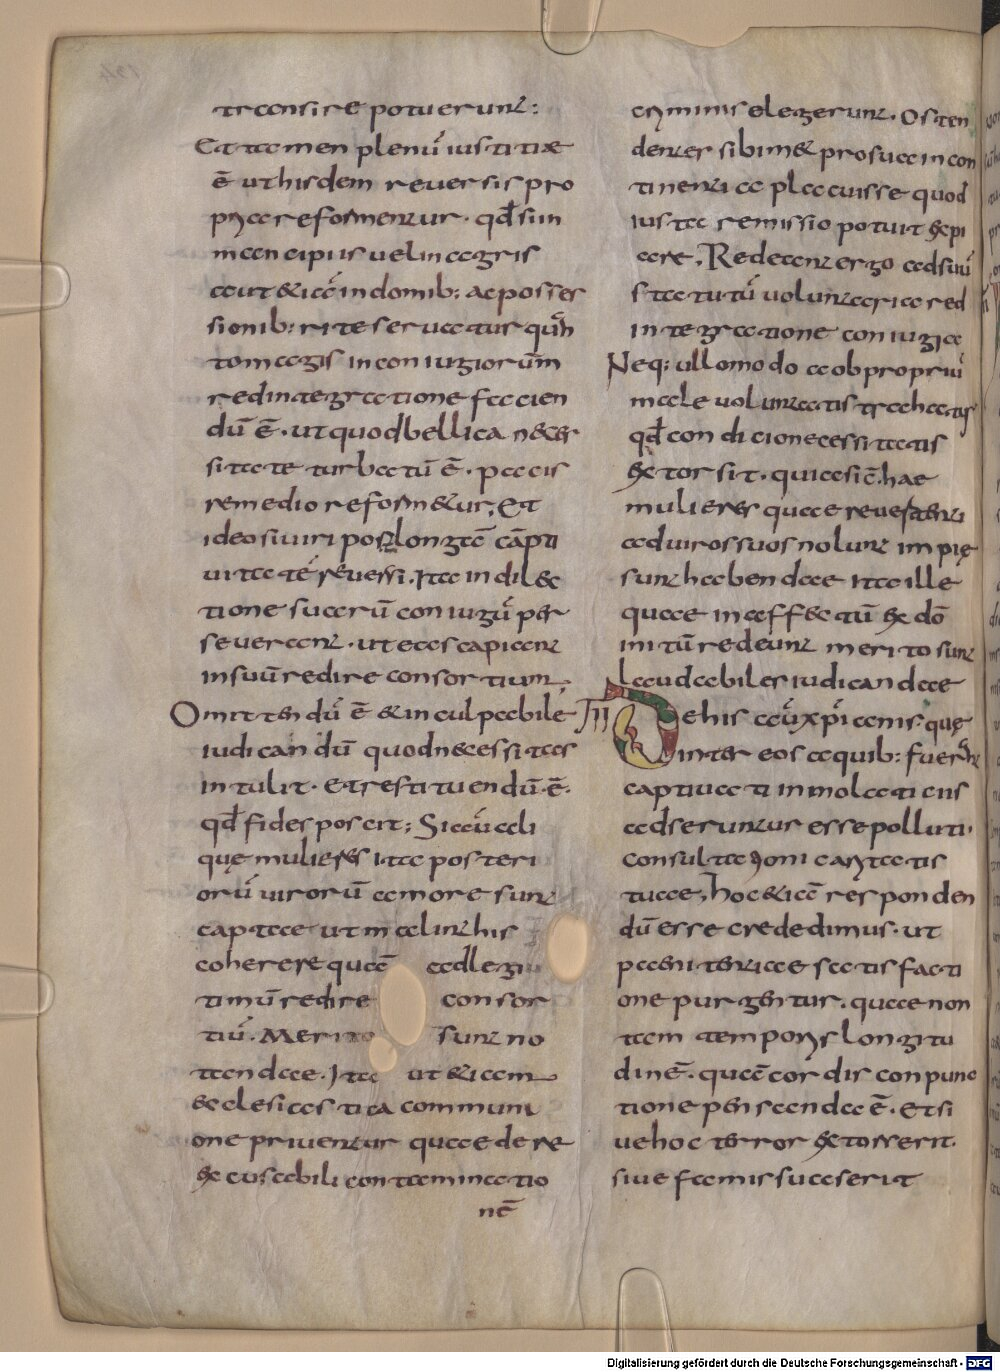 transire potuerunt:
Et tamen plenū iustitiae
ē ut hisdem reuersis pro
pria reformentur. qđ si in
mancipiis uel in agris
aut &iā in domib: ac posses
sionib: rite seruatur quan
to magis in coniugiorūm
redintegratione facien
dū ē. ut quod bellica neces
sitate turbatū ē. pacis
remedio reform&ur; Et
ideo si uiri post longā capti
uitatē reuersi. Ita in dilec
tione suarū coniugū per
seuerant. ut eas capiant
in suū redire consortium;
Omittendū ē & inculpabile
iudicandū quod necessitas
intulit. Et restituendū ē.
qđ fides poscit; Si aū ali
quę mulieres ita posteri
orū uirorū amore sunt
captae ut malint his
coherere quā ad legi
timū redire consor
tiū. Merito sunt no
tandae. Ita ut &iam
aeclesiastica communi
one priuentur quae de re
excusabili contaminatio
nē
criminis elegerunt. Osten
dentes sibimet pro sua incon
tinentia placuisse quod
iusta remissio potuit expi
are; Redeant ergo ad suū
statutū uoluntaria red
integratione coniugia
Neq: ullo modo ad obpropriū
malae uoluntatis trachatur
qđ condicio necessitatis
extorsit. quia sic hae
mulieres quae reuerti
ad uiros suos nolunt impię
sunt habendae ita illae
quae in affectū ex dō
initū redeunt merito sunt
laudabiles iudicandae
III De his aū xp̄ianis quę
inter eos a quib: fuerint
captiuati immolaticiis
adseruntur esse polluti.
Consultationi caritatis
tuae; hoc &iā responden
dū esse credidimus. ut
paenitentiae satisfacti
one purgentur. quae non
tam temporis longitu
dinē. quā cordis conpunc
tione pensanda ē. Et si
ue hoc terror extorserit.
siue famis suaserit
Digitalisierung gefördert durch die Deutsche Forschungsgemeinschaft - DFG